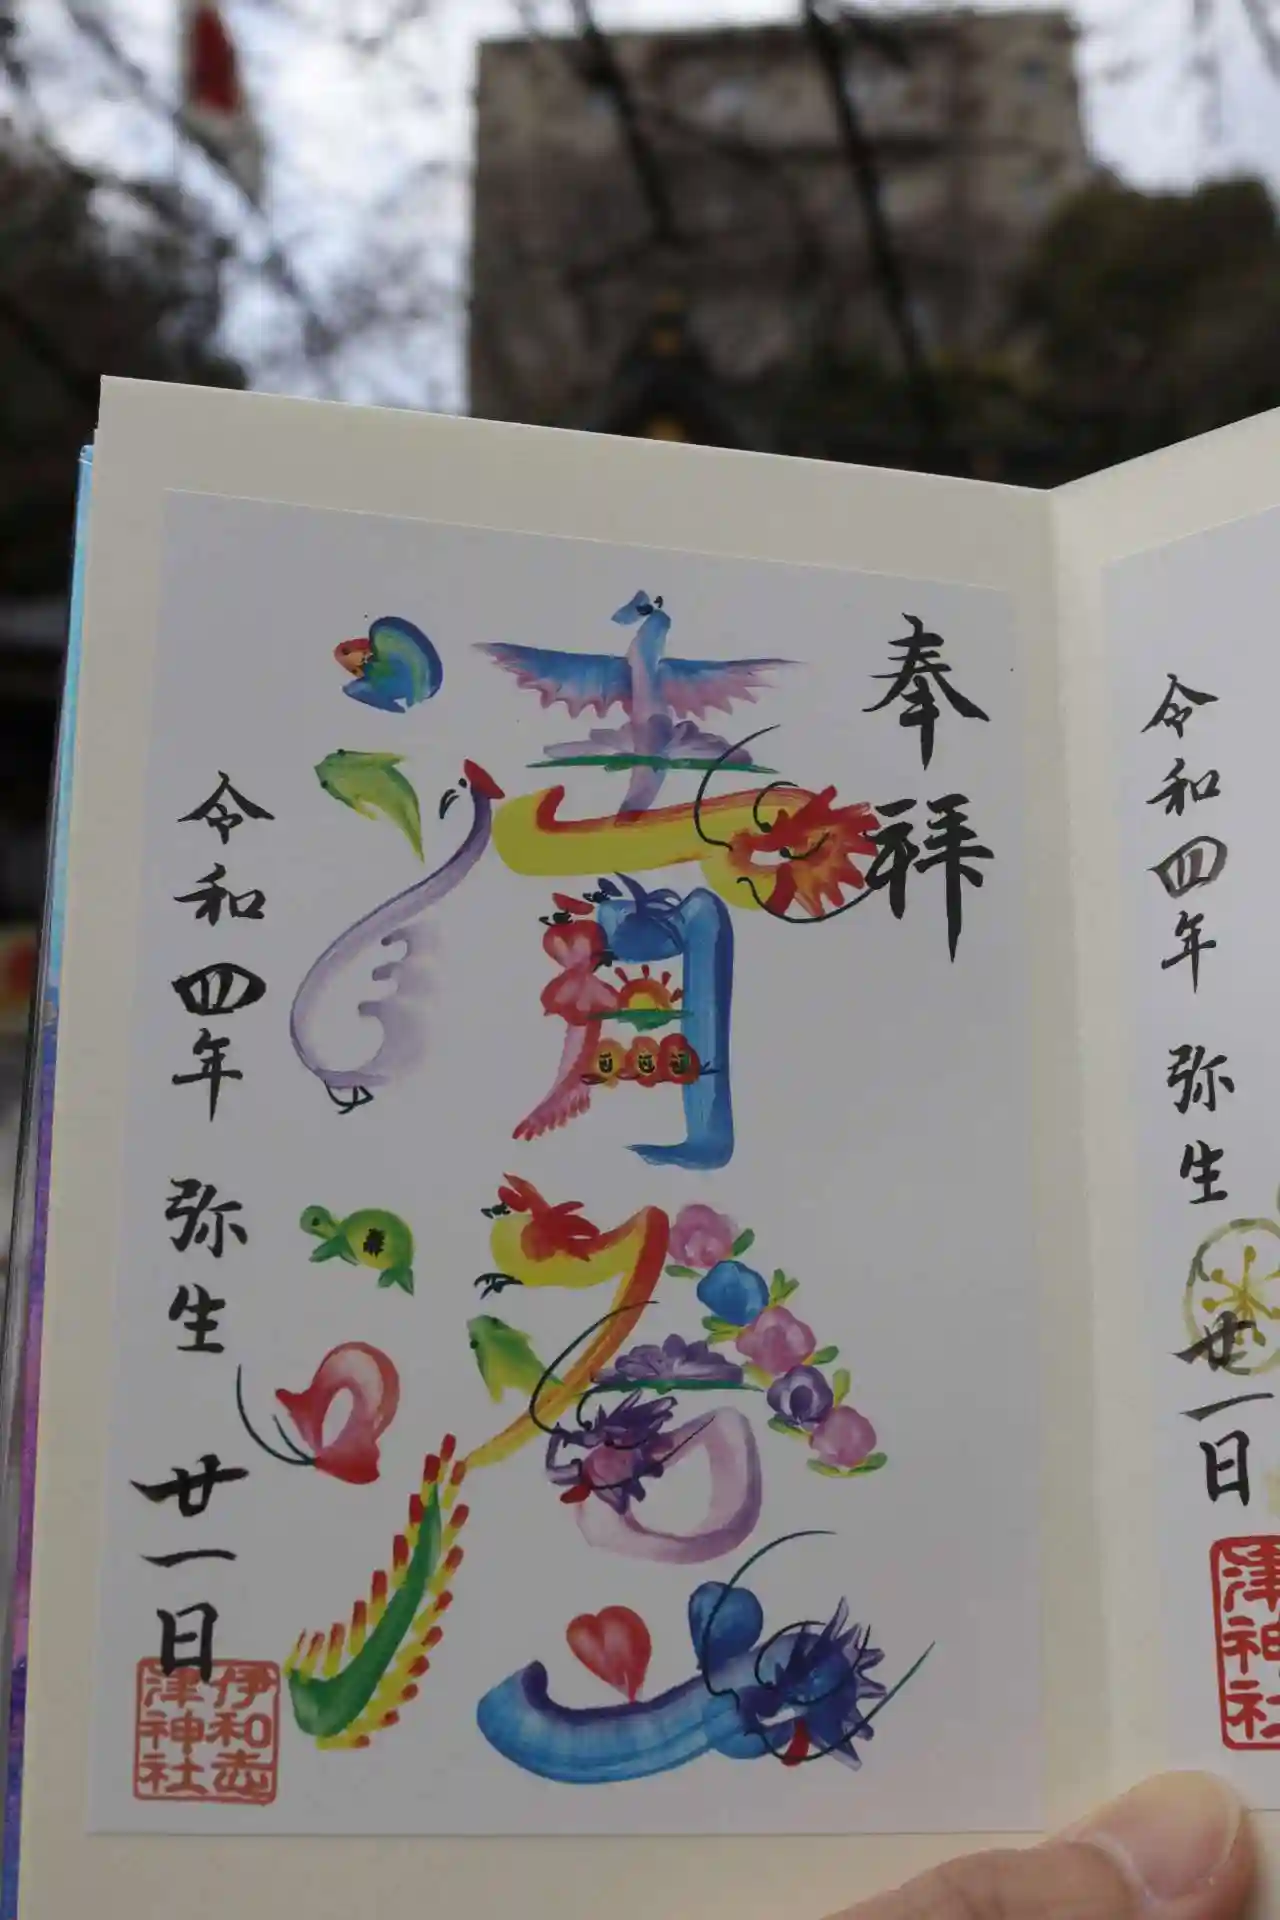 令和四年 弥生 廿一日
津神社
奉拝
清
心
令和四年 弥生 廿一日
伊和志
津神社